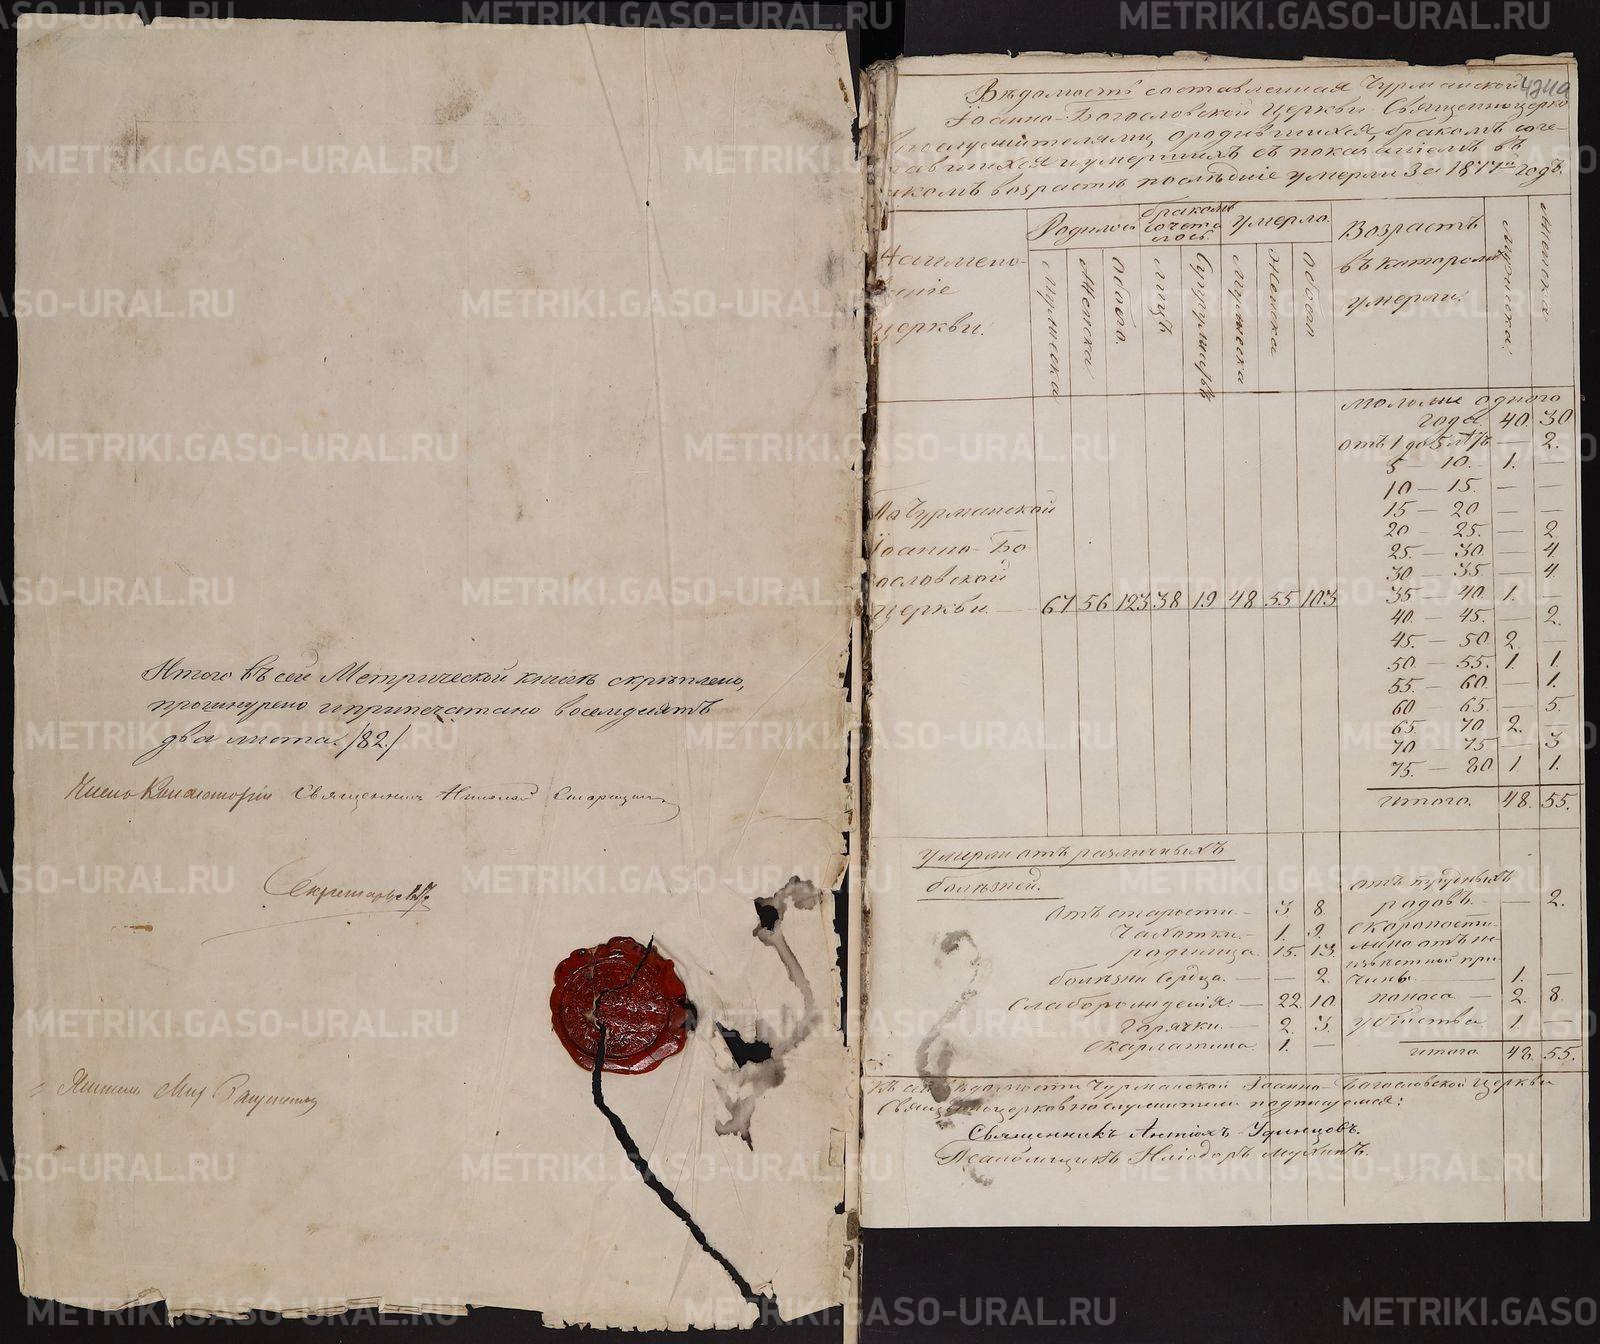 Итого въ сей Метрической книгѣ скрѣплено,
прошнурено и припечатано восемдесятъ
два листа. /82./
Членъ Консисторіи Священникъ Николай
Секретарь
424а
Вѣдомость составленная Чурманской
Іоанно-Богословской Церкви Священноцерко
вно служителями, о родившихся, бракомъ соче-
тавшихся и умершихъ съ показаніемъ въ
какомъ возрастѣ послѣдніе умерли за 1877й годъ.
Наимено-
ваніе
церкви.
Родилось
Мужеска
Женска
Обоего.
бракомъ
сочета
лось
лицъ
Супружествъ
Умерло.
Мужеска
Женска
Обоего
Возрастъ
въ которомъ
умерли.
Мужеска.
Женска
Моложе одного
года. 40. 30
отъ 1 до 5 лѣтъ — 2.
5 — 10. 1. —
10 — 15. — —
15 — 20 — —
20 — 25. — 2
25. — 30 — 4.
30 — 35 — 4.
35 — 40. 1. —
40. — 45. — 2.
45. — 50 2. —
50 — 55. 1. 1.
55. — 60 — 1.
60 — 65. — 5.
65. 70 2. —
70 75 — 3
75. — 80 1. 1.
Итого. 48. 55.
По Чурманской
Іоанно-Бо
гословской
церкви — 67 56 123 38 19 48 55 103
Умерли отъ различныхъ
болѣзней.
Отъ старости — 3 8
Чахотки — 1. 9.
родимца 15. 13.
болѣзни сердца — — 2.
Слаборожденія — 22. 10
Горячки — 2. 3.
Скарлатина 1. —
отъ трудныхъ
родовъ. — — 2.
Скоропости-
жно отъ не
извѣстной при
чины 1. —
поноса — 2. 8.
Убійства 1. —
Итого 48. 55.
Къ сей вѣдомости Чурманской Іоанно-Богословской церкви
Священноцерковнослужители подписуемся:
Священникъ Антіохъ Удинцовъ.
Псаломщикъ Иліодоръ Мухинъ.
METRIKI.GASO-URAL.RU